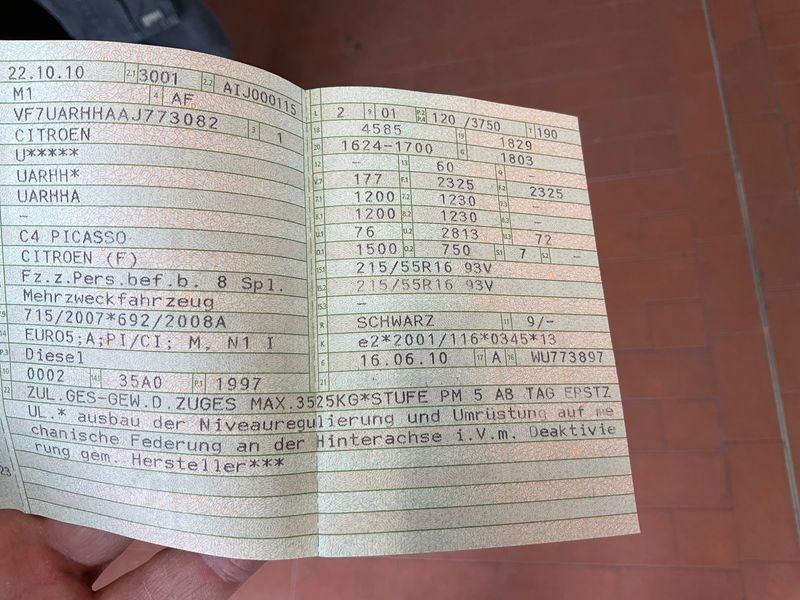 22.10.10 2.1 3001 2.2 AIJ000115
M1 4 AF
VF7UARHHAAJ773082 3 1
CITROEN
U*****
UARHH*
UARHHA
–
C4 PICASSO
CITROEN (F)
Fz.z.Pers.bef.b. 8 Spl.
Mehrzweckfahrzeug
715/2007*692/2008A
EURO5;A;PI/CI; M, N1 I
P.3 Diesel
10 0002 14.1 35A0 P.1 1997
L 2 9 01 P.2 P.4 120 /3750 T 190
18 4585 19 1829
20 1624-1700 G 1803
12 – 13 60 Q –
V.7 177 F.1 2325 F.2 2325
7.1 1200 7.2 1230 7.3 –
8.1 1200 8.2 1230 8.3 –
U.1 76 U.2 2813 U.3 72
O.1 1500 O.2 750 S.1 7 S.2 –
15.1 215/55R16 93V
15.2 215/55R16 93V
15.3 –
R SCHWARZ 11 9/–
K e2*2001/116*0345*13
6 16.06.10 17 A 16 WU773897
21
22 ZUL.GES-GEW.D.ZUGES MAX.3525KG*STUFE PM 5 AB TAG ERSTZ
UL.* ausbau der Niveauregulierung und Umrüstung auf me
chanische Federung an der Hinterachse i.V.m. Deaktivie
rung gem. Hersteller***
23